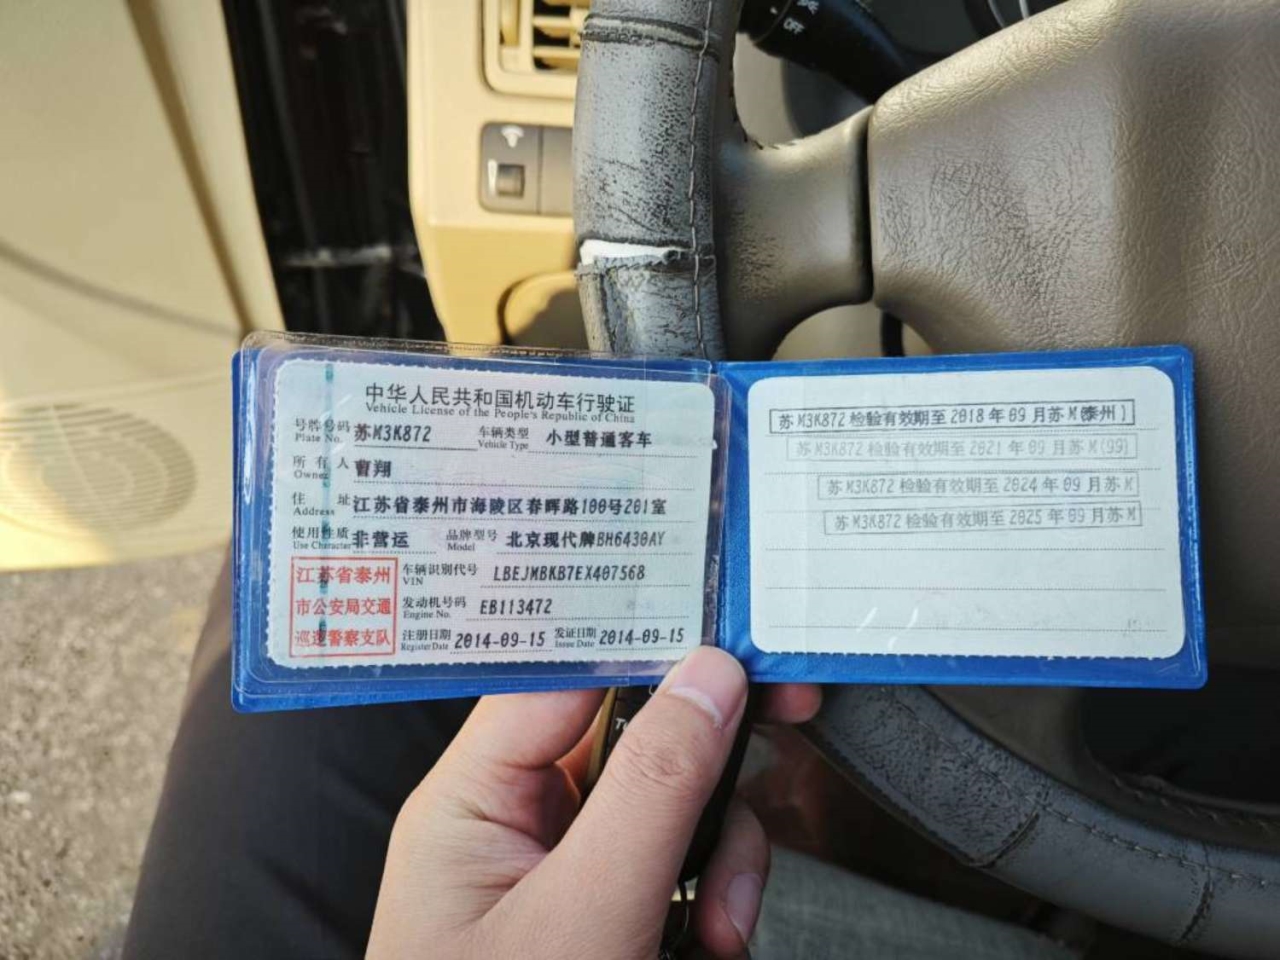 OFF
中华人民共和国机动车行驶证
Vehicle License of the People's Republic of China
号牌号码 苏M3K872 车辆类型 小型普通客车
Plate No. Vehicle Type
所有人 曹翔
Owner
住址 江苏省泰州市海陵区春晖路100号201室
Address
使用性质 非营运 品牌型号 北京现代牌BH6430AY
Use Character Model
江苏省泰州
市公安局交通
巡逻警察支队
车辆识别代号 LBEJMBKB7EX407568
VIN
发动机号码 EB113472
Engine No.
注册日期 2014-09-15 发证日期 2014-09-15
Register Date Issue Date
苏M3K872 检验有效期至 2018 年 09 月苏 M(泰州)
苏M3K872 检验有效期至 2021 年 09 月苏 M(99)
苏 M3K872 检验有效期至 2024 年 09 月苏 M
苏 M3K872 检验有效期至 2025 年 09 月苏 M